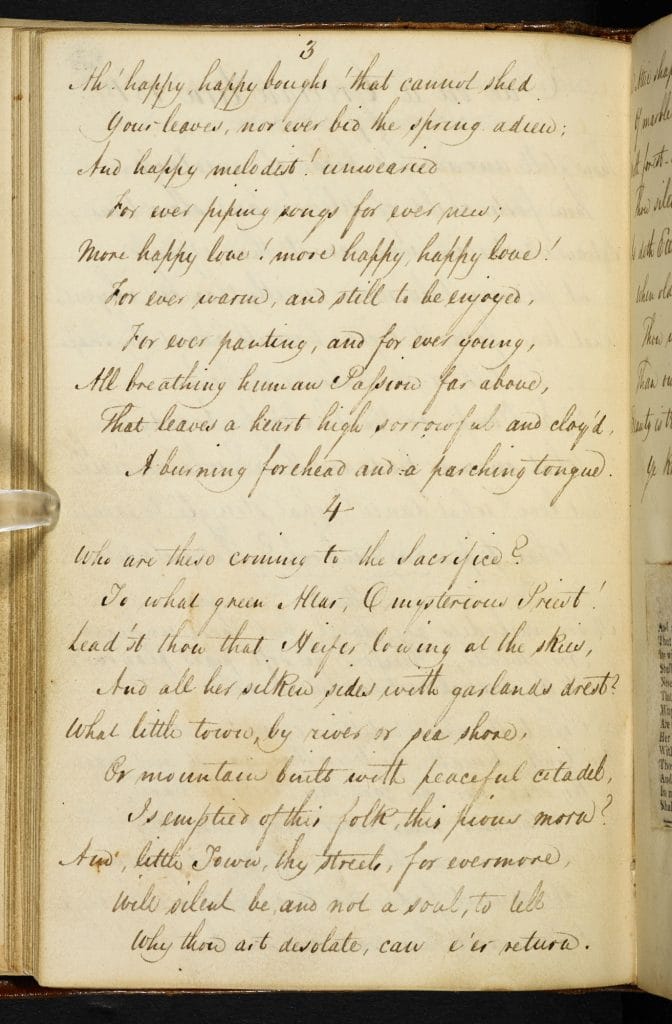 3
Ah! happy, happy boughs! that cannot shed
Your leaves, nor ever bid the spring adieu;
And happy melodist! unwearied
For ever piping songs for ever new;
More happy love! more happy, happy love!
For ever warm, and still to be enjoyed,
For ever panting, and for ever young,
All breathing human Passion far above,
That leaves a heart high sorrowful and cloy'd,
A burning forehead and a parching tongue.
4
Who are these coming to the Sacrifice?
To what green Altar, O mysterious Priest!
Lead'st thou that Heifer lowing at the skies,
And all her silken sides with garlands drest?
What little town, by river or sea shore,
Or mountain built with peaceful citadel,
Is emptied of this folk, this pious morn?
And, little Town, thy streets, for evermore,
Will silent be, and not a soul, to tell
Why thou art desolate, can e'er return.